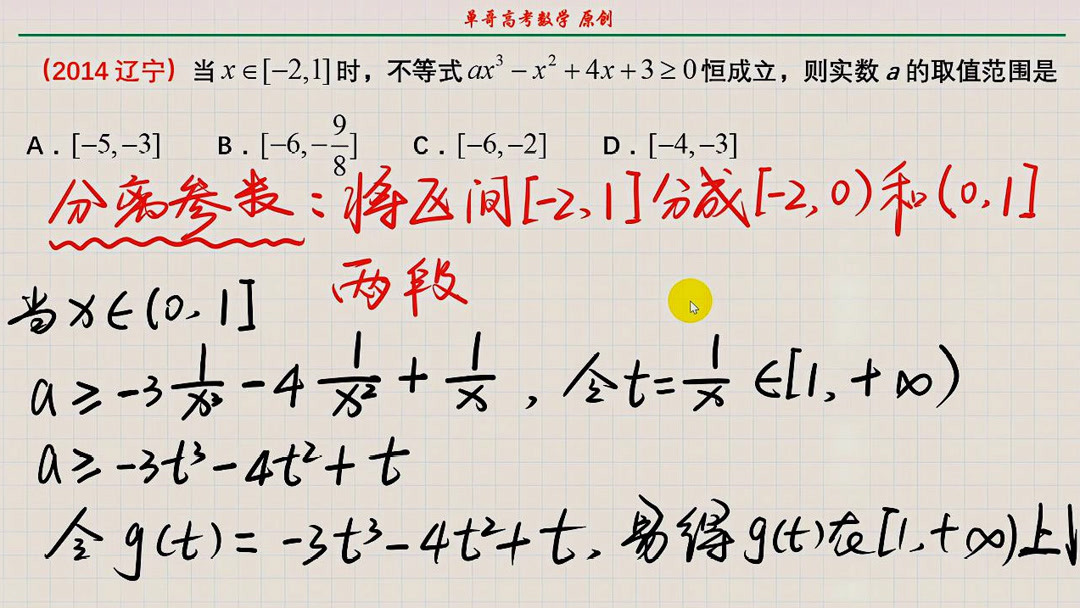 单哥高考数学 原创
（2014 辽宁）当 x∈[−2,1] 时，不等式 ax³−x²+4x+3≥0 恒成立，则实数 a 的取值范围是
A．[−5,−3] B．[−6,−9/8] C．[−6,−2] D．[−4,−3]
分离参数：将区间[-2,1]分成[-2,0)和(0,1]
两段
当x∈(0,1]
a≥-3 1/x³ -4 1/x² + 1/x，令t=1/x∈[1,+∞)
a≥-3t³-4t²+t
令g(t)=-3t³-4t²+t，易得g(t)在[1,+∞)上↓